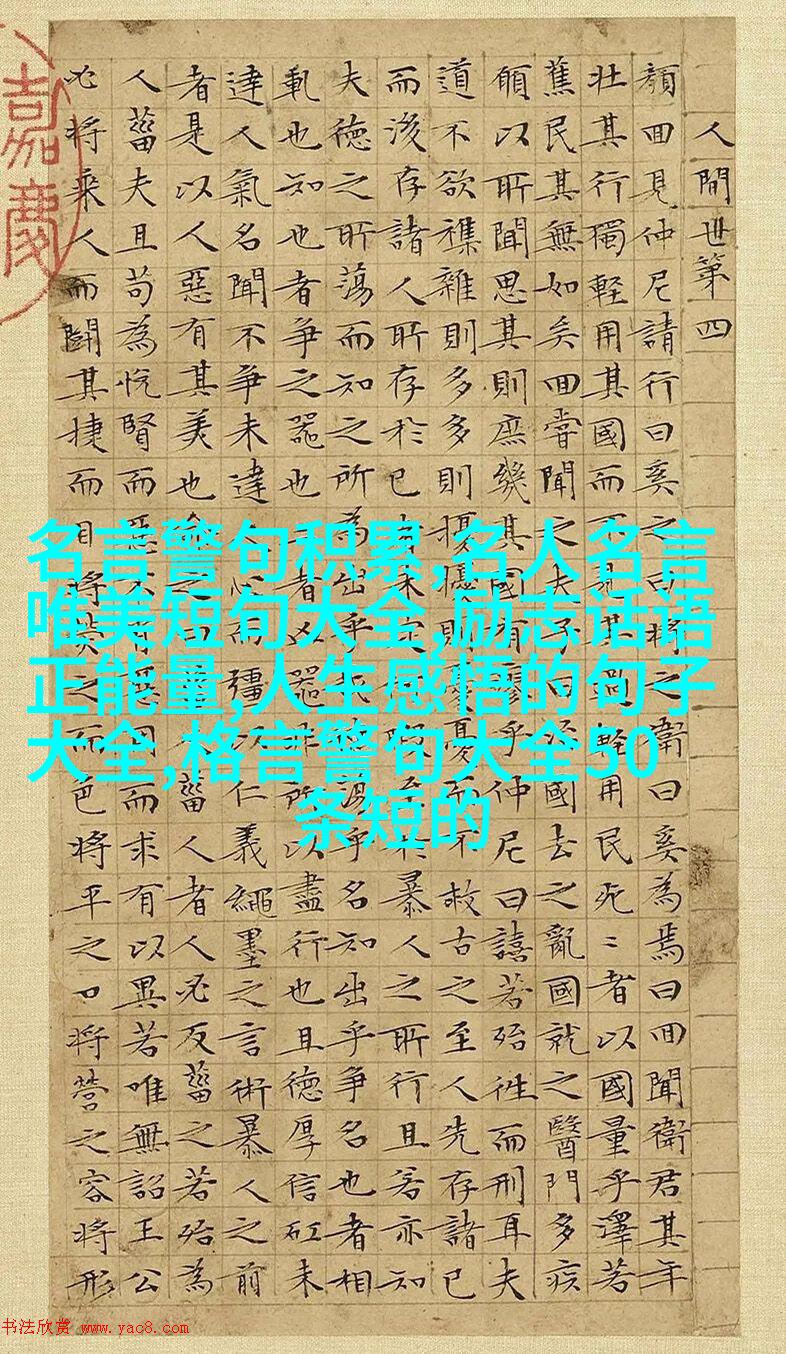 人間世第四
顏回見仲尼請行曰奚之曰將之衛曰奚為焉曰回聞衛君其年
壯其行獨輕用其國而不見其過輕用民死〻者以國量乎澤若
蕉民其無如矣回嘗聞之夫子曰治國去之亂國就之醫門多疾
願以所聞思其則庶幾其國有瘳乎仲尼曰譆若殆往而刑耳夫
道不欲襍雜則多多則擾擾則憂憂而不救古之至人先存諸已
而後存諸人所存於已者未定何暇至於暴人之所行且若亦知
夫德之所蕩而知之所為出乎哉德蕩乎名知出乎爭名也者相
軋也知也者爭之器也二者凶器非所以盡行也且德厚信矼未
達人氣名聞不爭未達人心而彊以仁義繩墨之言術暴人之前
者是以人惡有其美也命之曰菑人者人必反菑之若殆為
人菑夫且苟為悅賢而惡不肖惡用而求有以異若唯無詔王公
必將乘人而鬭其捷而目將熒之而色將平之口將營之容將形
嘉慶
名言警句积累,名人名言
唯美短句大全,励志话语
正能量,人生感悟的句子
大全,格言警句大全50
条短的
书法欣赏 www.yac8.com